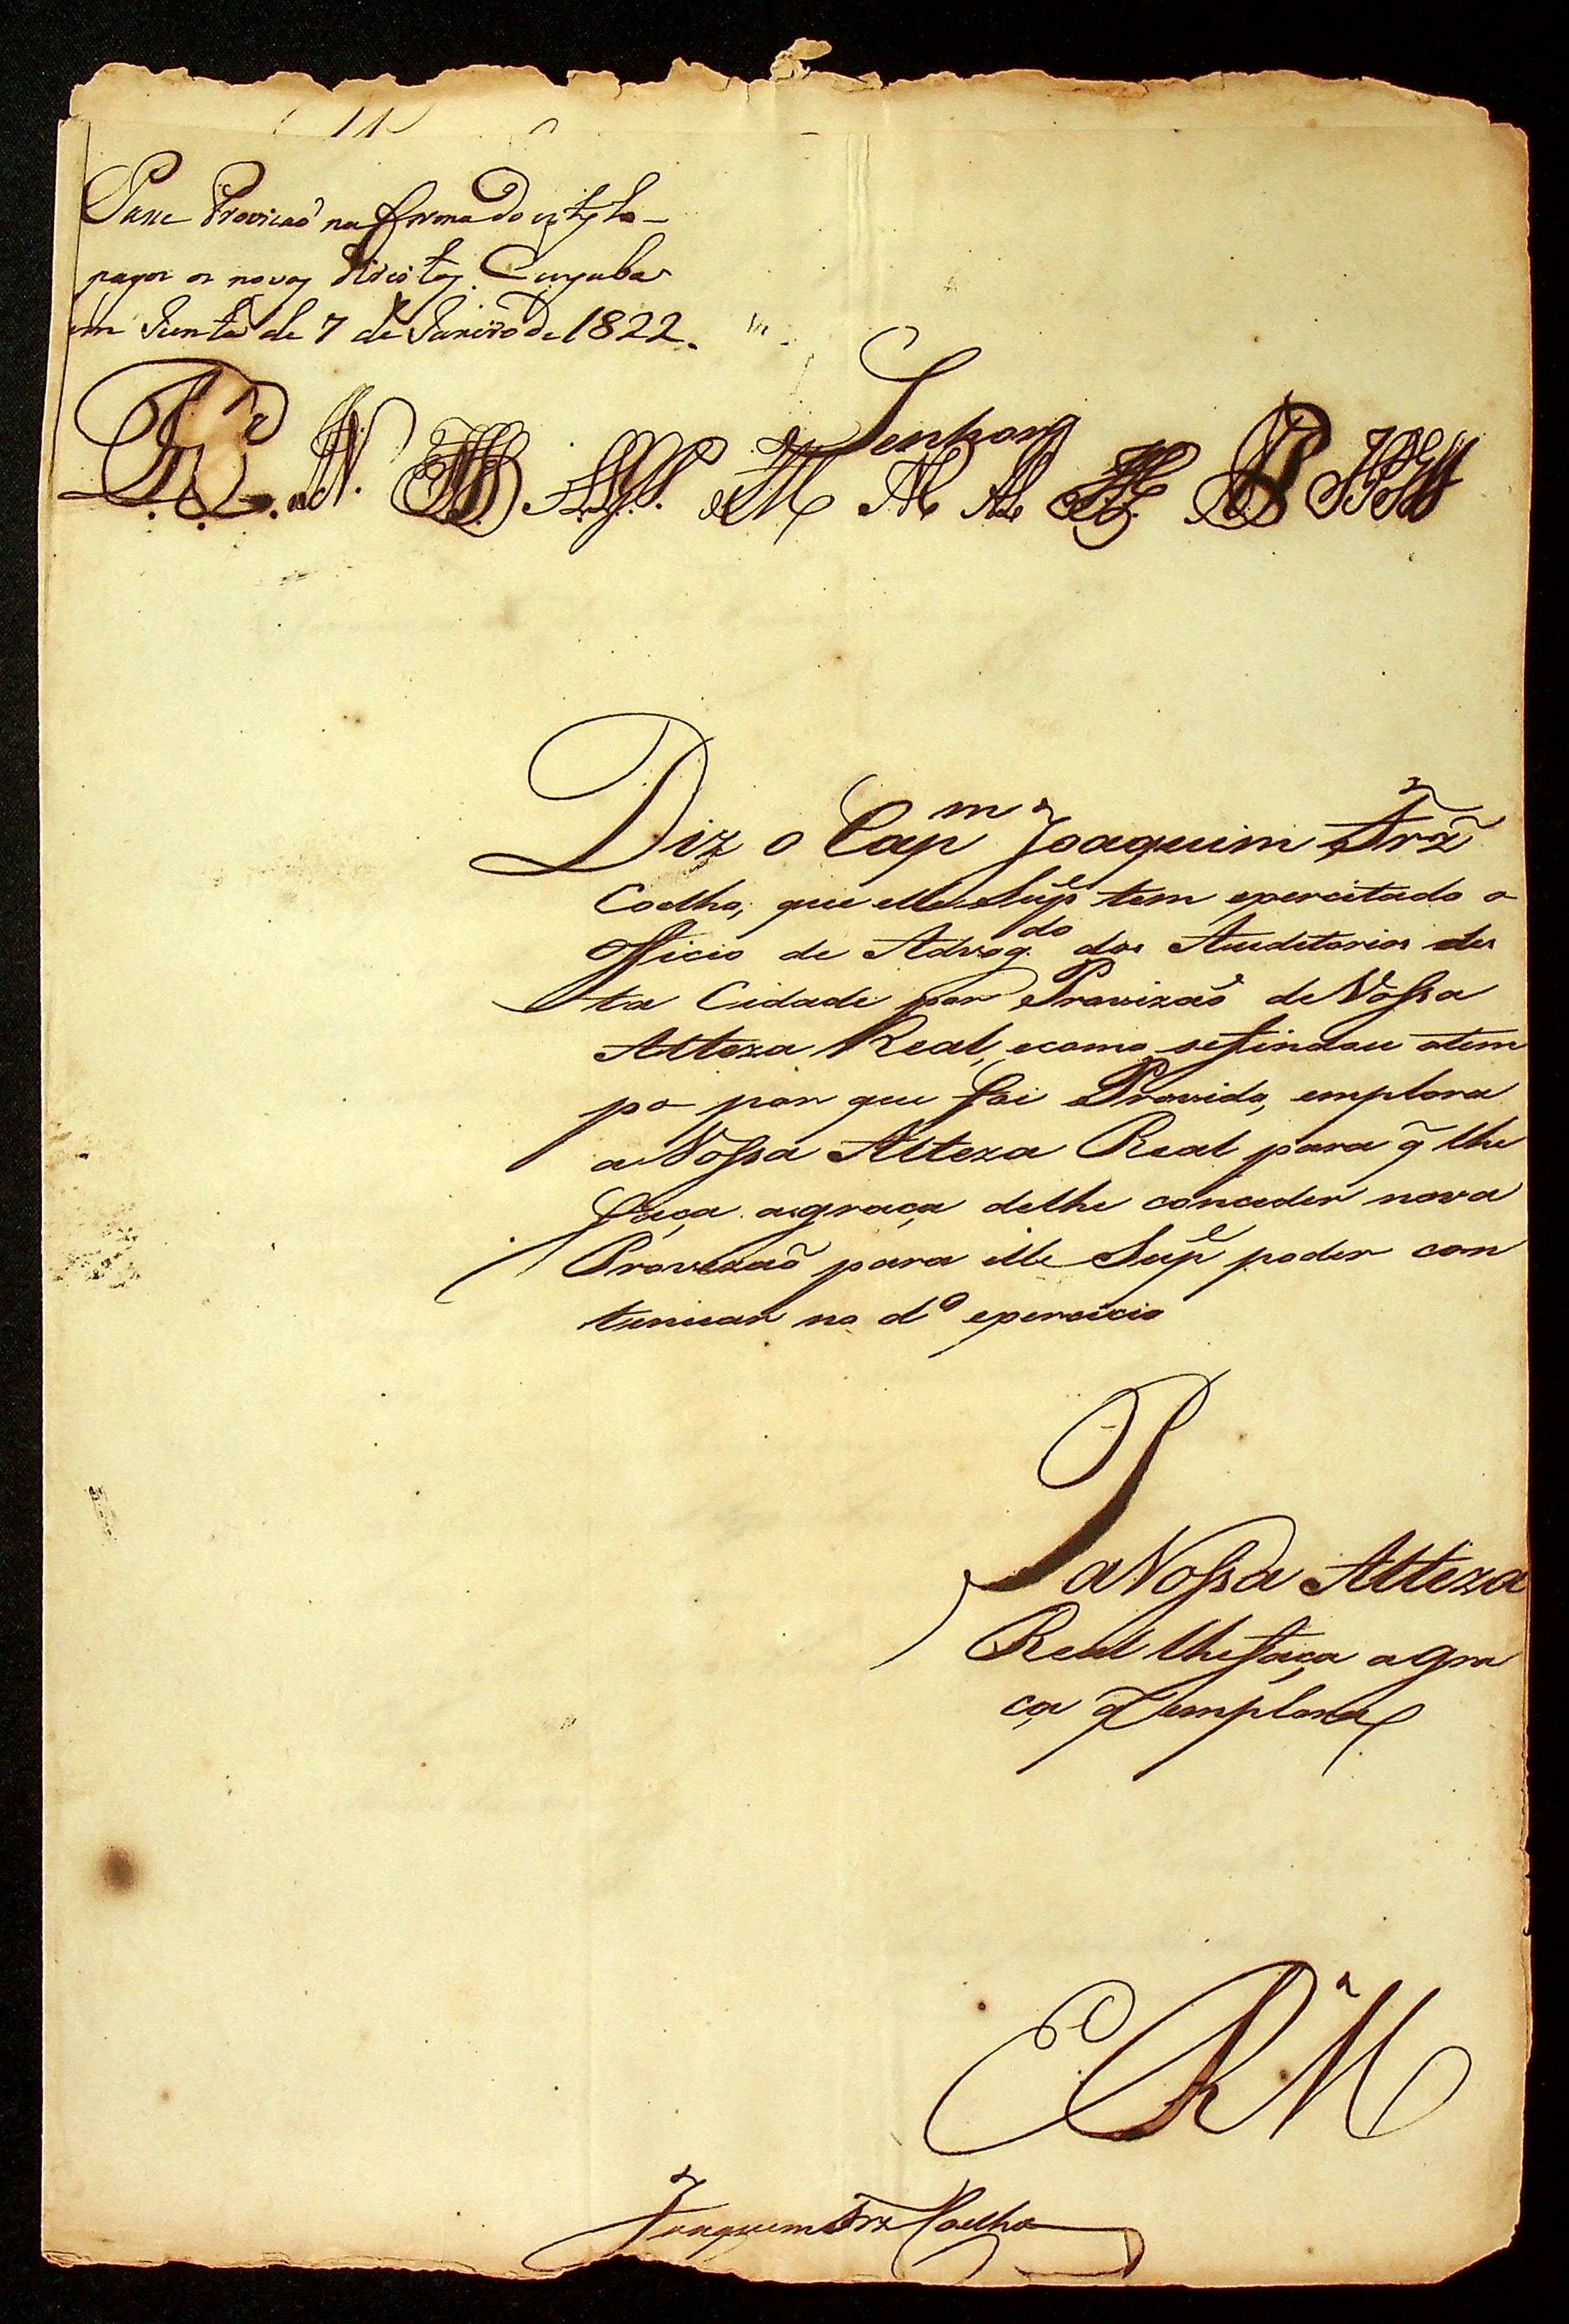 Passe Provizaõ na forma do estylo
pagos os novos Direitos. Cuyaba
em Junta de 7 de Janeiro de 1822.
Senhor
Diz o Capm Joaquim Frz
Coelho, que elle Supe tem exercitado o
Officio de Advogdo dos Auditorios des
ta Cidade por Provizaõ de Vossa
Alteza Real, ecomo sefindou otem
po por que foi Provido, emplora
a Vossa Alteza Real para q̃ lhe
faça agraça delhe conceder nova
Provezaõ para elle Supe poder con
tenuar no do exercicio
P
a Vossa Alteza
Real lhefaça a gra
ça q̃ emplora
E R Mce
Joaquim Frz Coelho